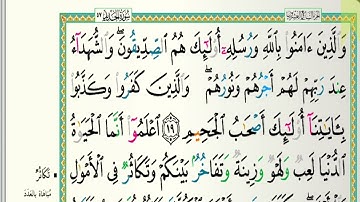 سُورَةُ الحَدِيدِ ٥٧
وَالَّذِينَ ءَامَنُوا بِاللَّهِ وَرُسُلِهِ أُولَٰئِكَ هُمُ الصِّدِّيقُونَ ۖ وَالشُّهَدَاءُ
عِندَ رَبِّهِمْ لَهُمْ أَجْرُهُمْ وَنُورُهُمْ ۖ وَالَّذِينَ كَفَرُوا وَكَذَّبُوا
بِـَٔايَـٰتِنَا أُولَٰئِكَ أَصْحَـٰبُ الْجَحِيمِ ١٩ اعْلَمُوا أَنَّمَا الْحَيَوٰةُ
الدُّنْيَا لَعِبٌ وَلَهْوٌ وَزِينَةٌ وَتَفَاخُرٌ بَيْنَكُمْ وَتَكَاثُرٌ فِي الْأَمْوَٰلِ
تَكَاثُرٌ
مباهاة بالعدد